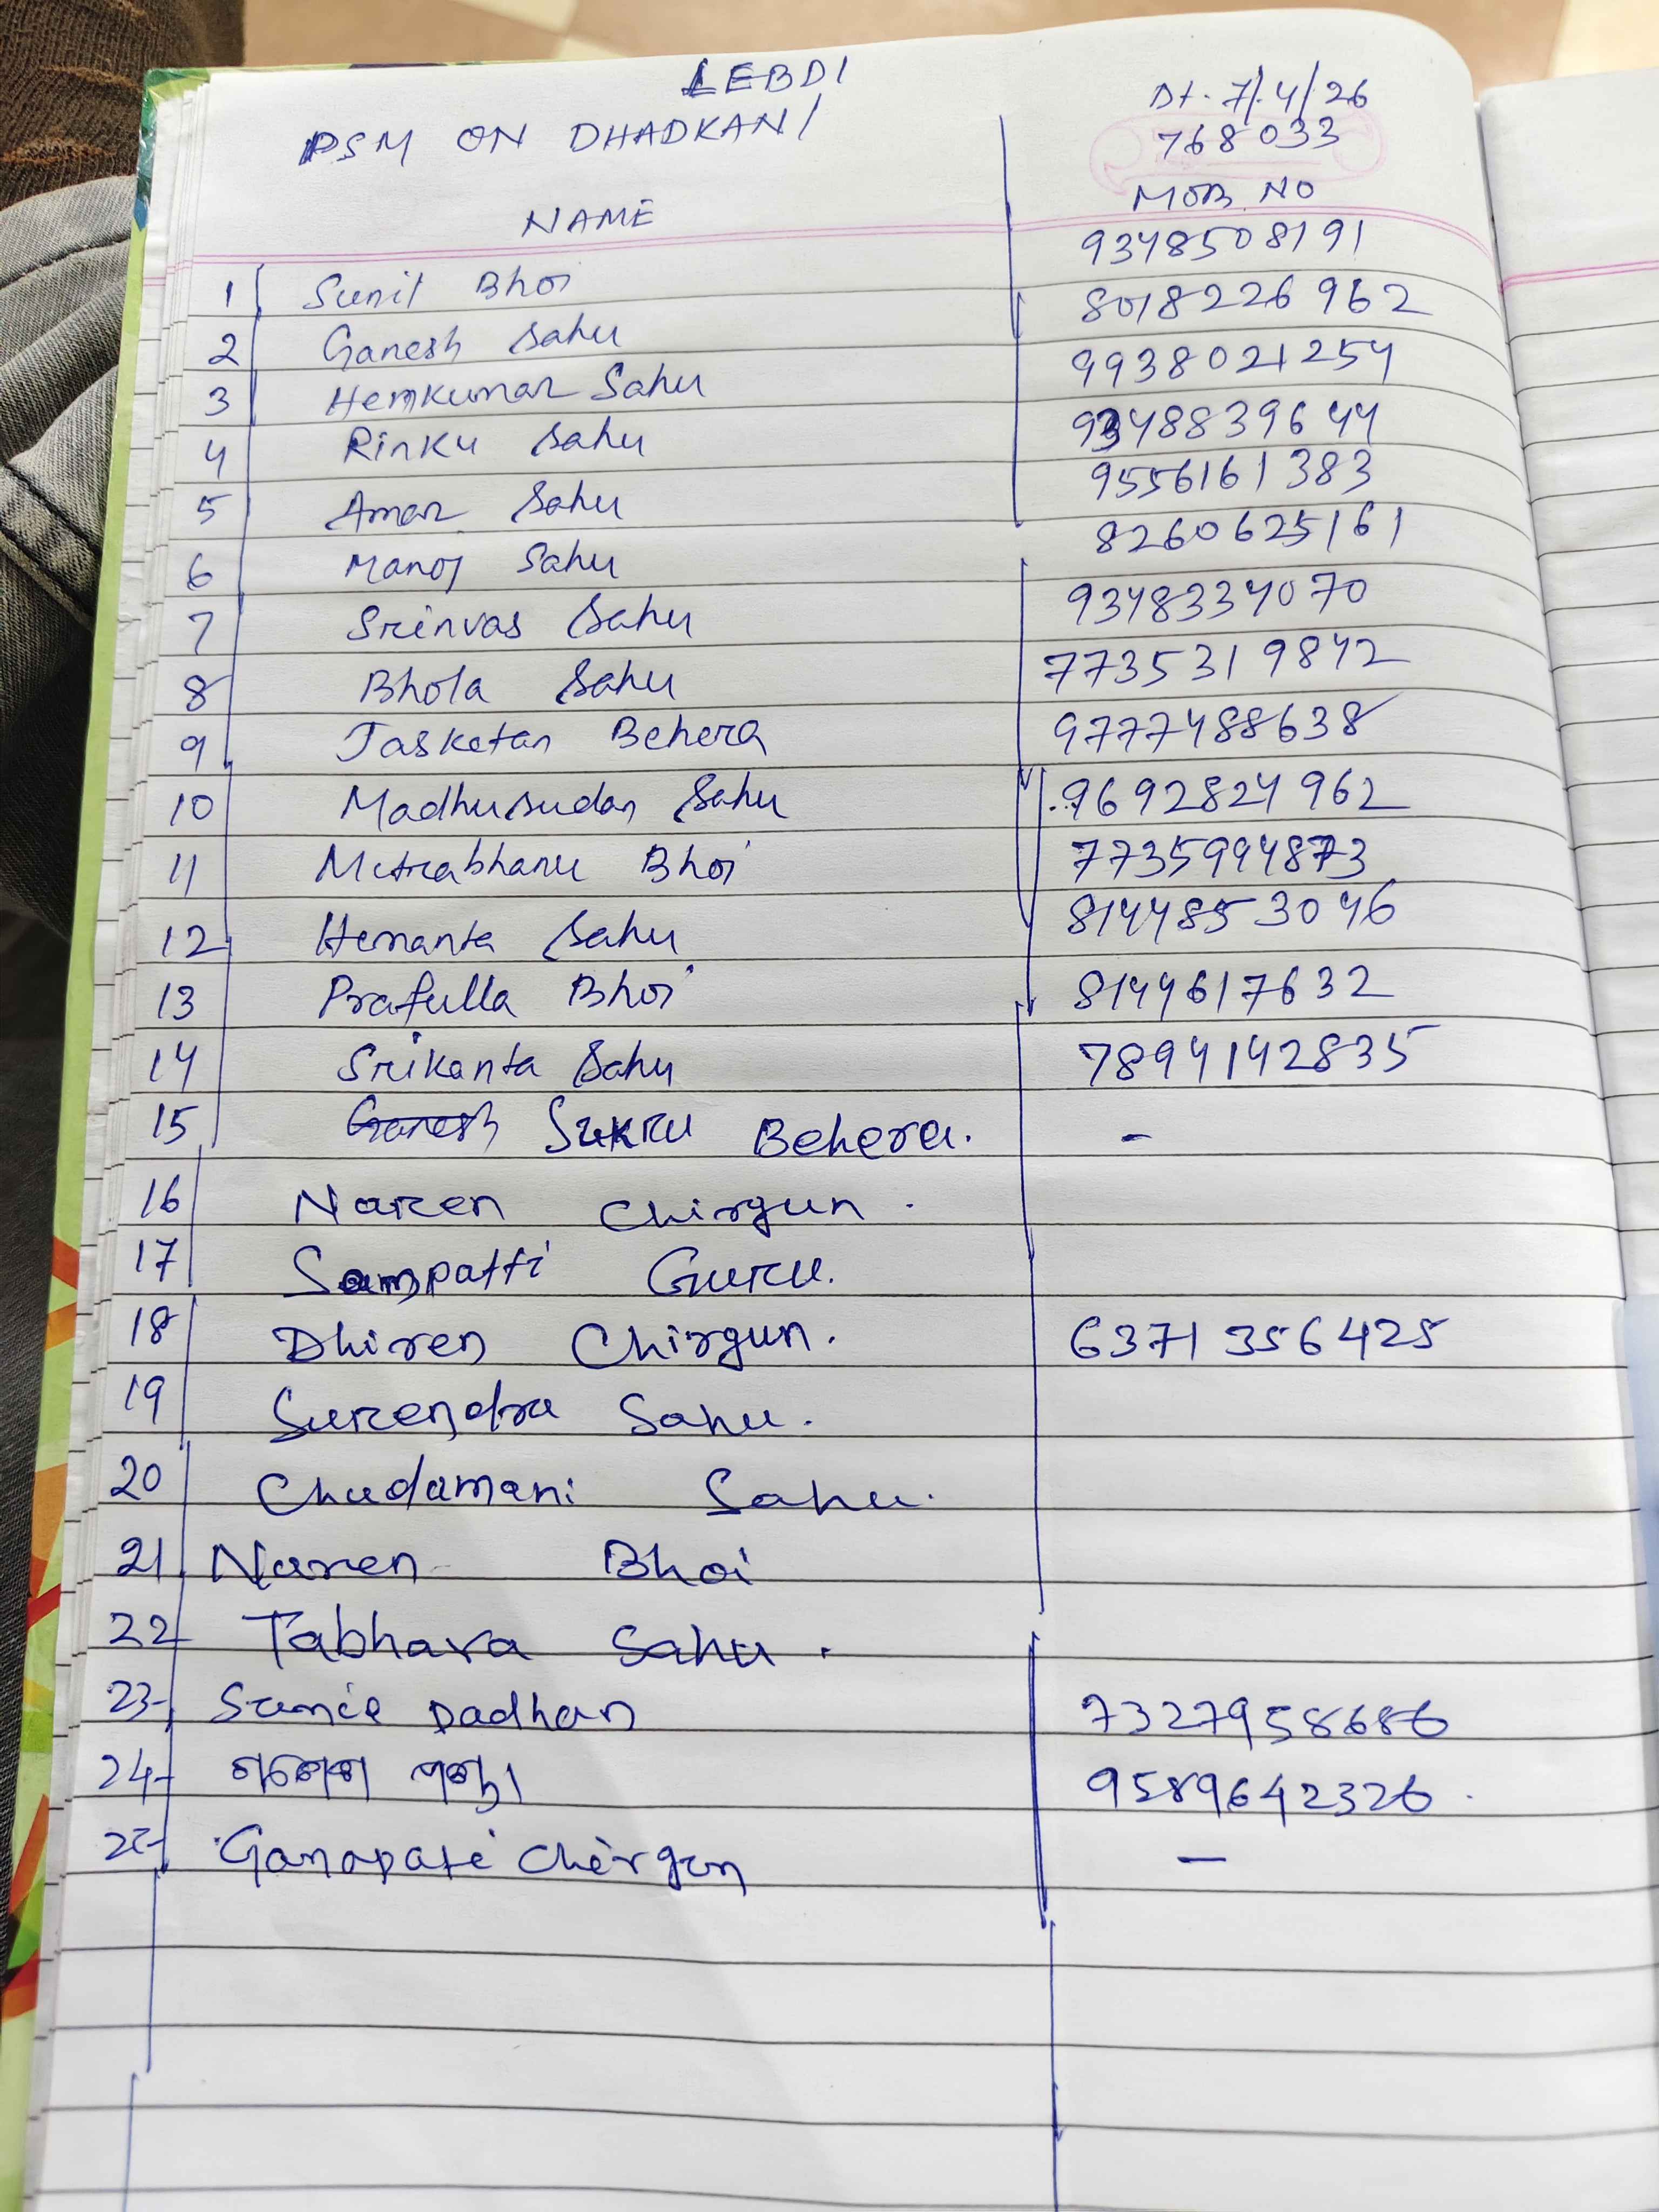 LEBDI
Dt. 7/4/26
PSM ON DHADKANI
768033
NAME MOB. NO
9348508191
1 Sunil Bhoi
8018226962
2 Ganesh Sahu
9938021254
3 Hemkumar Sahu
9348839644
4 Rinku Sahu
9556161383
5 Amar Sahu
8260625161
6 Manoj Sahu
7 Srinvas Sahu 9348334070
8 Bhola Sahu 7735319842
9 Jasketan Behera 9777488638
10 Madhusudan Sahu 9692824962
11 Mitrabhanu Bhoi 7735994873
12 Hemanta Sahu 8144853046
13 Prafulla Bhoi 8144617632
14 Srikanta Sahu 7894142835
15 Ganesh Sukru Behera. -
16 Naren Chirgun.
17 Sampatti Guru.
18 Dhiren Chirgun. 6371356425
19 Surendra Sahu.
20 Chudamani Sahu.
21 Naren Bhoi
22 Tabhara Sahu.
23- Dadhan 7327958686
24- 9589642326.
25- Ganapati Chirgun -